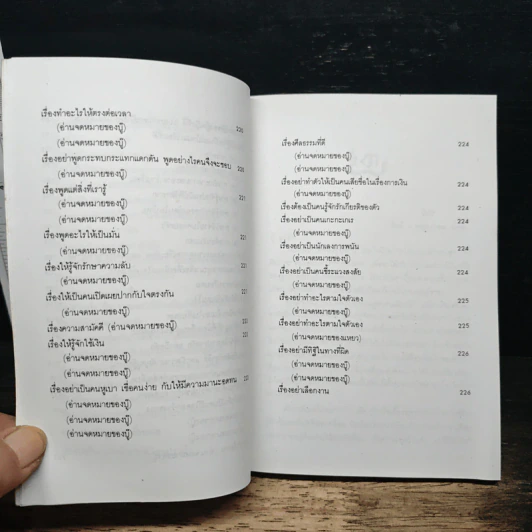 เรื่องทำอะไรให้ตรงต่อเวลา 220
(อ่านจดหมายของบู๊)
(อ่านจดหมายของบู๊)
เรื่องอย่าพูดกระทบกระแทกแดกดัน พูดอย่างไรคนจึงจะชอบ 220
(อ่านจดหมายของบู๊)
เรื่องพูดแต่สิ่งที่เรารู้ 221
(อ่านจดหมายของบู๊)
(อ่านจดหมายของบู๊)
เรื่องพูดอะไรให้เป็นมั่น 221
(อ่านจดหมายของบู๊)
เรื่องให้รู้จักรักษาความลับ 221
(อ่านจดหมายของบู๊)
เรื่องให้เป็นคนเปิดเผยปากกับใจตรงกัน 221
(อ่านจดหมายของบู๊)
เรื่องความสามัคคี (อ่านจดหมายของบู๊)
เรื่องให้รู้จักใช้เงิน
(อ่านจดหมายของบู๊)
(อ่านจดหมายของบู๊)
เรื่องอย่าเป็นคนหูเบา เชื่อคนง่าย กับให้มีความมานะอดทน
(อ่านจดหมายของบู๊)
(อ่านจดหมายของบู๊)
(อ่านจดหมายของบู๊)
เรื่องศีลธรรมที่ดี 224
(อ่านจดหมายของบู๊)
(อ่านจดหมายของบู๊)
เรื่องอย่าทำตัวให้เป็นคนเสียชื่อในเรื่องการเงิน 224
(อ่านจดหมายของบู๊)
เรื่องต้องเป็นคนรู้จักรักเกียรติของตัว 224
เรื่องอย่าเป็นคนเกะกะเกเร 224
(อ่านจดหมายของบู๊)
เรื่องอย่าเป็นนักเลงการพนัน
(อ่านจดหมายของบู๊)
เรื่องอย่าเป็นคนขี้ระแวงสงสัย 224
(อ่านจดหมายของบู๊)
เรื่องอย่าทำอะไรตามใจตัวเอง 225
(อ่านจดหมายของบู๊)
เรื่องอย่าทำอะไรตามใจตัวเอง 225
(อ่านจดหมายของแหยว)
เรื่องอย่ามีทิฐิในทางที่ผิด 226
(อ่านจดหมายของบู๊)
(อ่านจดหมายของบู๊)
เรื่องอย่าเลือกงาน 226